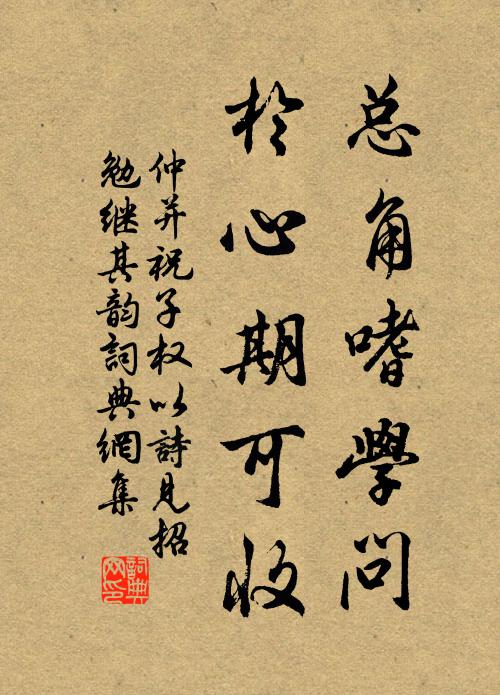 总角嗜學问
於心期可收
仲并祝子权以詩見招
勉继其韵詞典網集
詞典網印